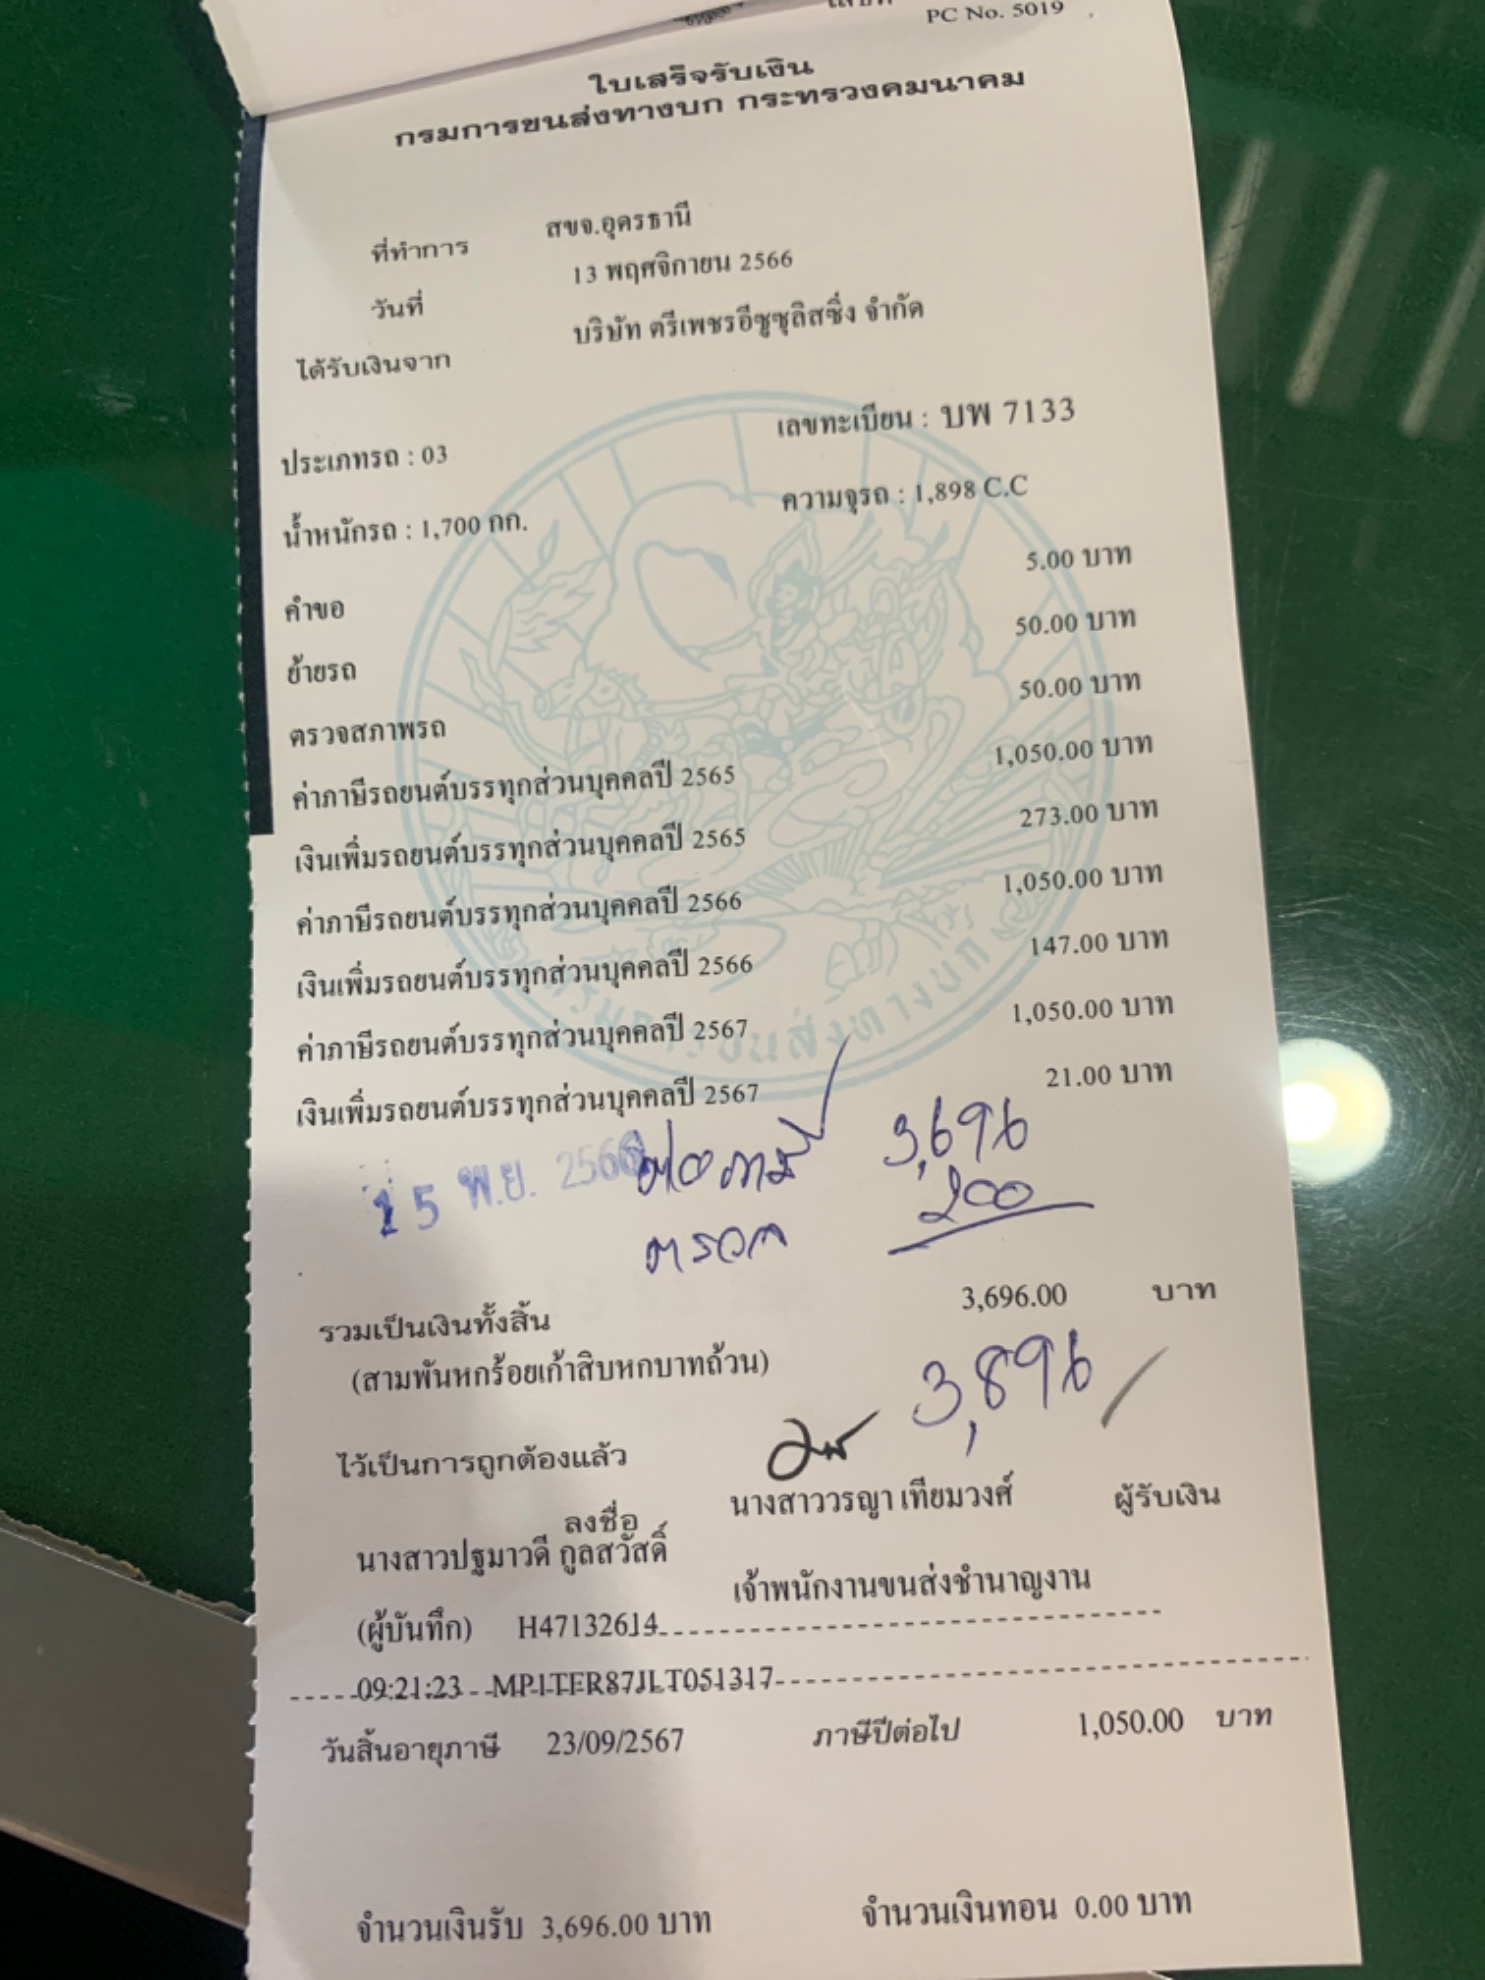 PC No. 5019
ใบเสร็จรับเงิน
กรมการขนส่งทางบก กระทรวงคมนาคม
ที่ทำการ สขจ.อุดรธานี
วันที่ 13 พฤศจิกายน 2566
ได้รับเงินจาก บริษัท ตรีเพชรอีซูซุลิสซิ่ง จำกัด
ประเภทรถ : 03 เลขทะเบียน : บพ 7133
น้ำหนักรถ : 1,700 กก. ความจุรถ : 1,898 C.C
คำขอ 5.00 บาท
ย้ายรถ 50.00 บาท
ตรวจสภาพรถ 50.00 บาท
ค่าภาษีรถยนต์บรรทุกส่วนบุคคลปี 2565 1,050.00 บาท
เงินเพิ่มรถยนต์บรรทุกส่วนบุคคลปี 2565 273.00 บาท
ค่าภาษีรถยนต์บรรทุกส่วนบุคคลปี 2566 1,050.00 บาท
เงินเพิ่มรถยนต์บรรทุกส่วนบุคคลปี 2566 147.00 บาท
ค่าภาษีรถยนต์บรรทุกส่วนบุคคลปี 2567 1,050.00 บาท
เงินเพิ่มรถยนต์บรรทุกส่วนบุคคลปี 2567 21.00 บาท
กรมการขนส่งทางบก
15 พ.ย. 2566 ต่อภาษี 3,696
ตรวจ 200
รวมเป็นเงินทั้งสิ้น 3,696.00 บาท
(สามพันหกร้อยเก้าสิบหกบาทถ้วน)
3,896
ไว้เป็นการถูกต้องแล้ว
ลงชื่อ นางสาววรญา เทียมวงศ์ ผู้รับเงิน
นางสาวปฐมาวดี กูลสวัสดิ์
เจ้าพนักงานขนส่งชำนาญงาน
(ผู้บันทึก) H47132614
09:21:23 MP1TFR87JLT051317
วันสิ้นอายุภาษี 23/09/2567 ภาษีปีต่อไป 1,050.00 บาท
จำนวนเงินรับ 3,696.00 บาท จำนวนเงินทอน 0.00 บาท